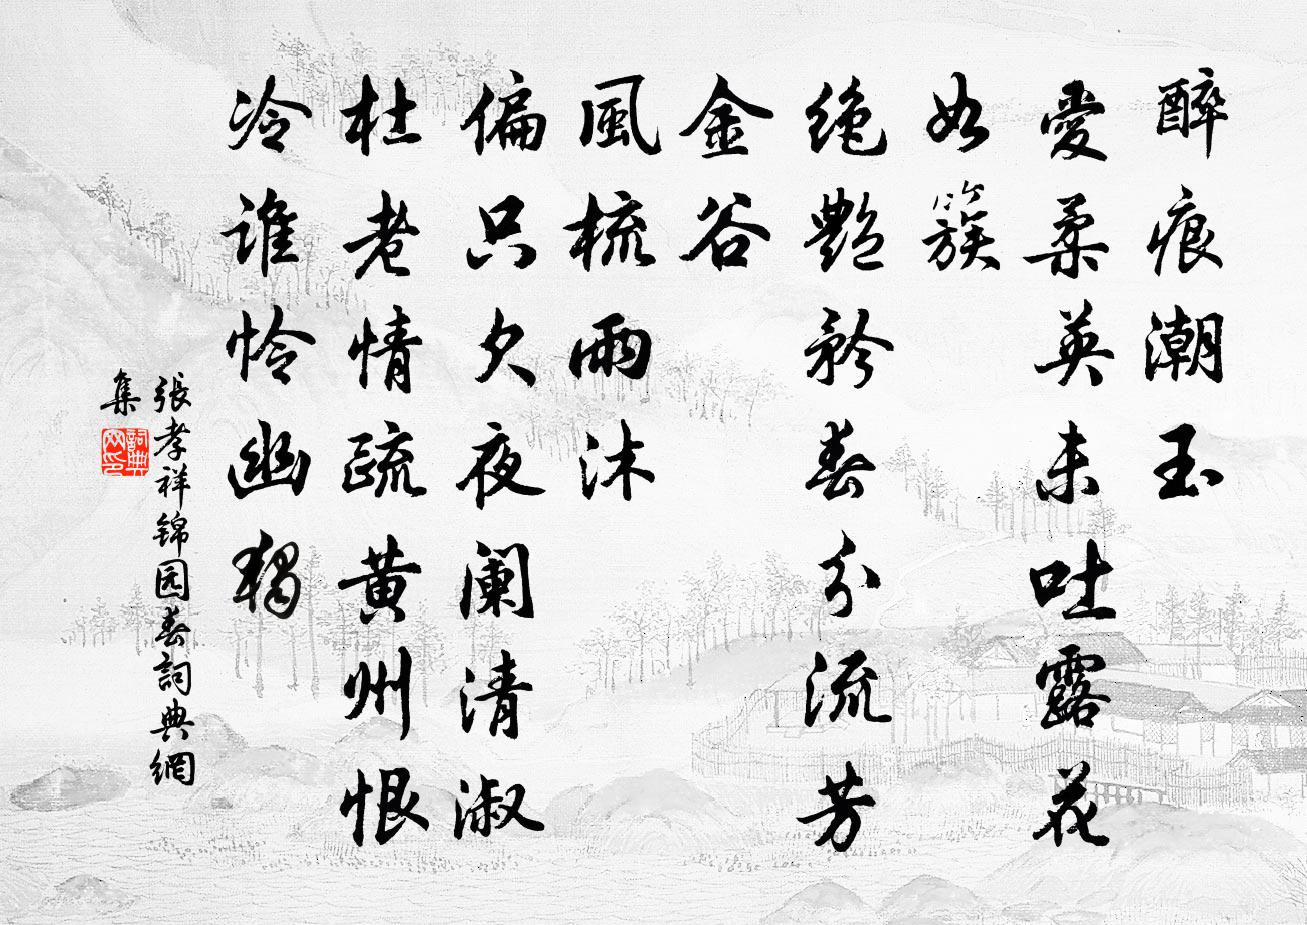 醉痕潮玉
愛柔英未吐露花
如簇
绝艷矜春分流芳
金谷
風梳雨沐
偏只欠夜阑清淑
杜老情疏黄州恨
冷誰怜幽独
張孝祥锦园春詞典網
集
詞典